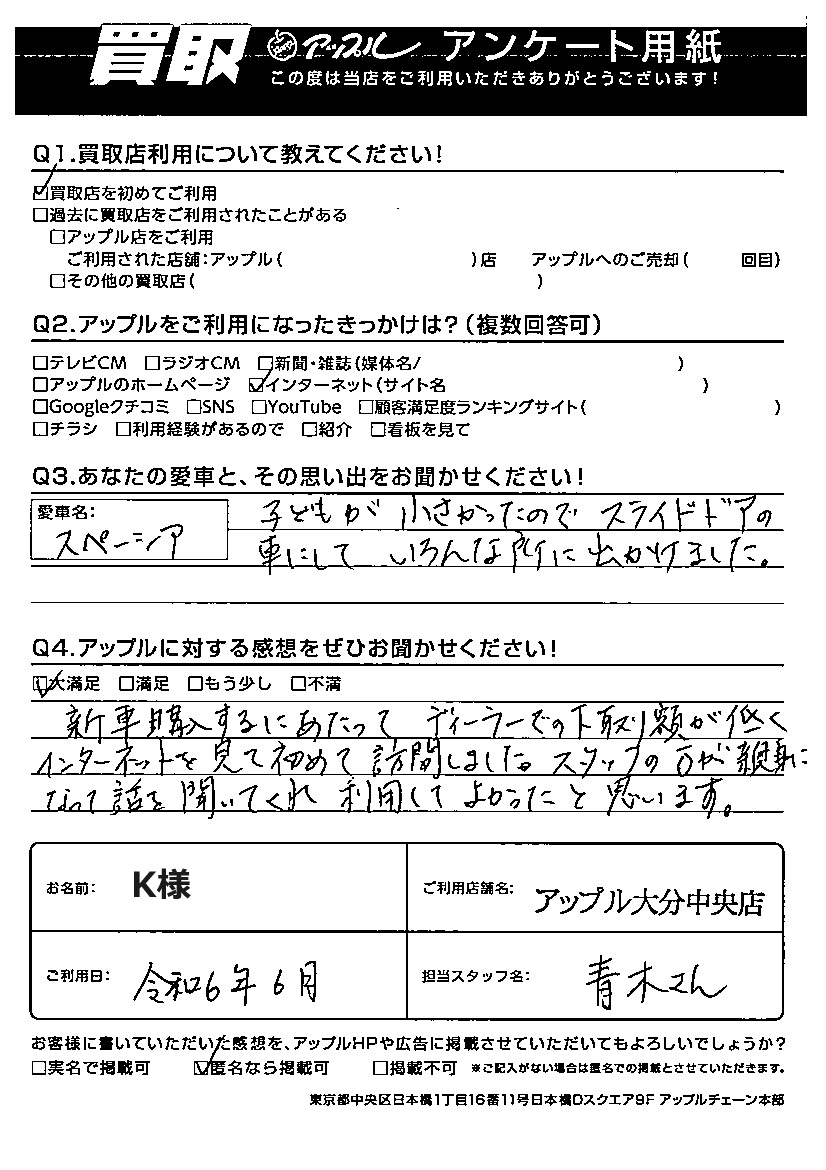 買取 アップル アンケート用紙
この度は当店をご利用いただきありがとうございます！
Q1.買取店利用について教えてください！
☑買取店を初めてご利用
□過去に買取店をご利用されたことがある
□アップル店をご利用
ご利用された店舗：アップル（ ）店 アップルへのご売却（ 回目）
□その他の買取店（ ）
Q2.アップルをご利用になったきっかけは？（複数回答可）
□テレビCM □ラジオCM □新聞・雑誌（媒体名/ ）
□アップルのホームページ ☑インターネット（サイト名 ）
□Googleクチコミ □SNS □YouTube □顧客満足度ランキングサイト（ ）
□チラシ □利用経験があるので □紹介 □看板を見て
Q3.あなたの愛車と、その思い出をお聞かせください！
愛車名：
スペーシア
子どもが小さかったのでスライドドアの
車にしていろんな所に出かけました。
Q4.アップルに対する感想をぜひお聞かせください！
☑大満足 □満足 □もう少し □不満
新車購入するにあたってディーラーでの下取り額が低く
インターネットを見て初めて訪問しました。スタッフの方が親身に
なって話を聞いてくれ利用してよかったと思います。
お名前： K様 ご利用店舗名： アップル大分中央店
ご利用日： 令和6年6月 担当スタッフ名： 青木さん
お客様に書いていただいた感想を、アップルHPや広告に掲載させていただいてもよろしいでしょうか？
□実名で掲載可 ☑匿名なら掲載可 □掲載不可 ※ご記入がない場合は匿名での掲載とさせていただきます。
東京都中央区日本橋1丁目16番11号日本橋Dスクエア9F アップルチェーン本部